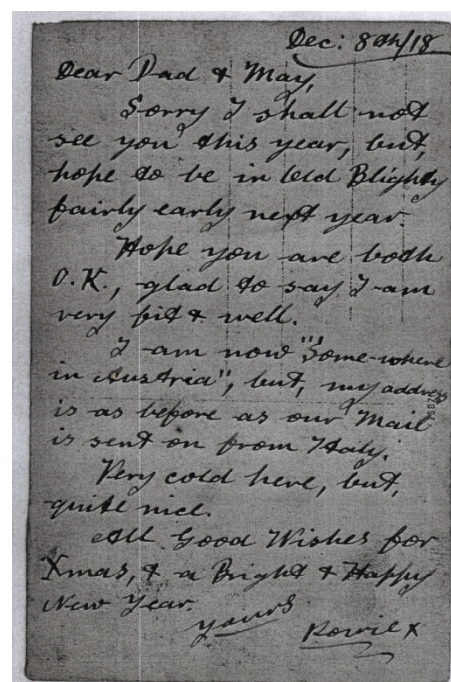 Dec: 8th/18
Dear Dad & May,
Sorry I shall not
see you this year, but,
hope to be in old Blighty
fairly early next year.
Hope you are both
O.K., glad to say I am
very fit & well.
I am now "Some-where
in Austria", but, my address
is as before as our Mail
is sent on from Italy.
Very cold here, but,
quite nice.
All Good Wishes for
Xmas, & a Bright & Happy
New Year.
Yours